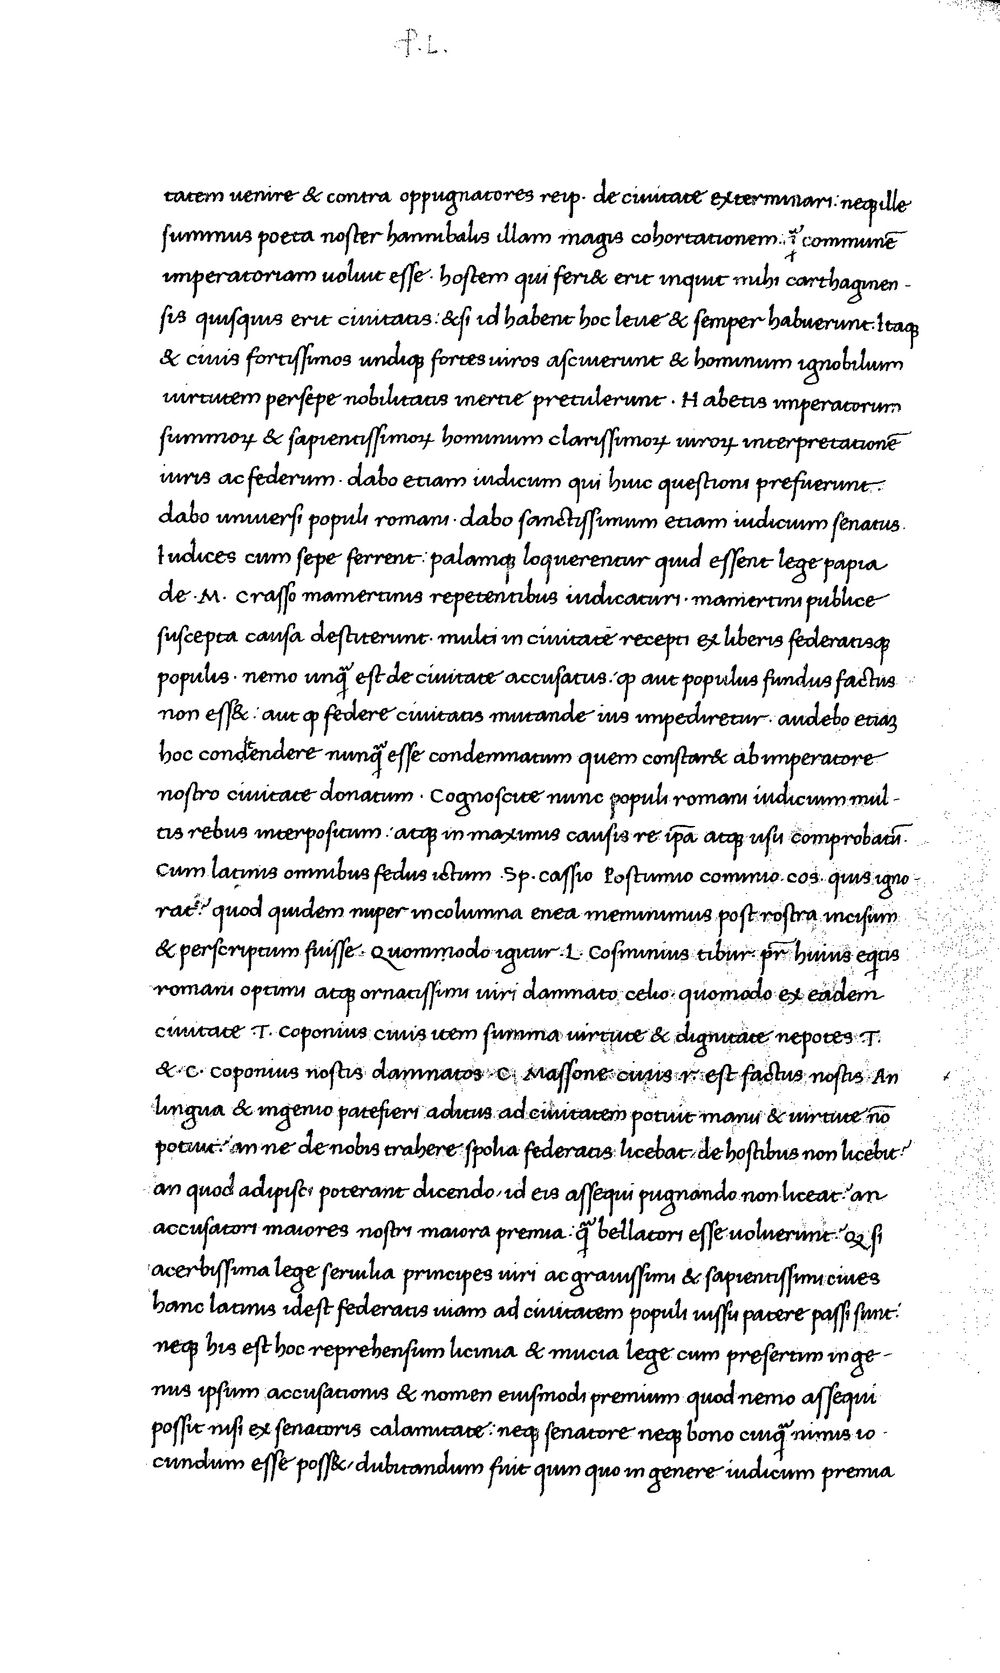 P. L.
tatem uenire & contra oppugnatores reip. de ciuitate exterminari: neqꝫ ille
summus poeta noster hannibalis illam magis cohortationem. q̃ communẽ
imperatoriam uoluit esse. hostem qui feri& erit inquit mihi carthaginen-
sis quisquis erit ciuitatis: & si id habent hoc leue & semper habuerunt. Itaqꝫ
& ciuis fortissimos undiqꝫ fortes uiros asciuerunt & hominum ignobilium
uirtutem persepe nobilitatis inertie pretulerunt. Habetis imperatorum
summoꝝ & sapientissimoꝝ hominum clarissimoꝝ uiroꝝ interpretationẽ
iuris ac federum. dabo etiam iudicum qui huic questioni prefuerunt:
dabo uniuersi populi romani. dabo sanctissimum etiam iudicium senatus.
Iudices cum sepe ferrent: palamqꝫ loquerentur quid essent lege papia
de .M. Crasso mamertinis repetentibus iudicaturi. mamertini publice
suscepta causa destiterunt. multi in ciuitate recepti ex liberis federatisqꝫ
populis. nemo unq̃ est de ciuitate accusatus: ꝙ aut populus fundus factus
non ess&: aut ꝙ federe ciuitatis mutande ius impediretur. audebo etiaꝫ
hoc contendere nunq̃ esse condemnatum quem constar& ab imperatore
nostro ciuitate donatum. Cognoscite nunc populi romani iudicium mul-
tis rebus interpositum: atqꝫ in maximis causis re ip̃a atqꝫ usu comprobatũ.
Cum latinis omnibus fedus ictum .Sp. cassio Postumio cominio. cos. quis igno-
rat? quod quidem nuper in columna enea meminimus post rostra incisum
& perscriptum fuisse. Quommodo igitur .L. Cosinius tibur. pr̃ huius eqtis
romani optimi atqꝫ ornatissimi uiri damnato celio. quomodo ex eadem
ciuitate .T. Coponius ciuis item summa uirtute & dignitate nepotes .T.
& .C. Coponius nostis damnatos .C. Massone ciuis .r. est factus nostis An
lingua & ingenio patefieri aditus ad ciuitatem potuit manu & uirtute nõ
potuit? an ne de nobis trahere spolia federatis licebat, de hostibus non licebit?
an quod adipisci poterant dicendo, id eis assequi pugnando non liceat? an
accusatori maiores nostri maiora premia. q̃ bellatori esse uoluerunt? Qꝫ si
acerbissima lege seruilia principes uiri ac grauissimi & sapientissimi ciues
hanc latinis idest federatis uiam ad ciuitatem populi iussu patere passi sunt:
neqꝫ his est hoc reprehensum licinia & mucia lege cum presertim in ge-
nus ipsum accusationis & nomen eiusmodi premium quod nemo assequi
possit nisi ex senatoris calamitate: neqꝫ senatore neqꝫ bono cuiq̃ nimis io-
cundum esse poss&, dubitandum fuit quin quo in genere iudicum premia